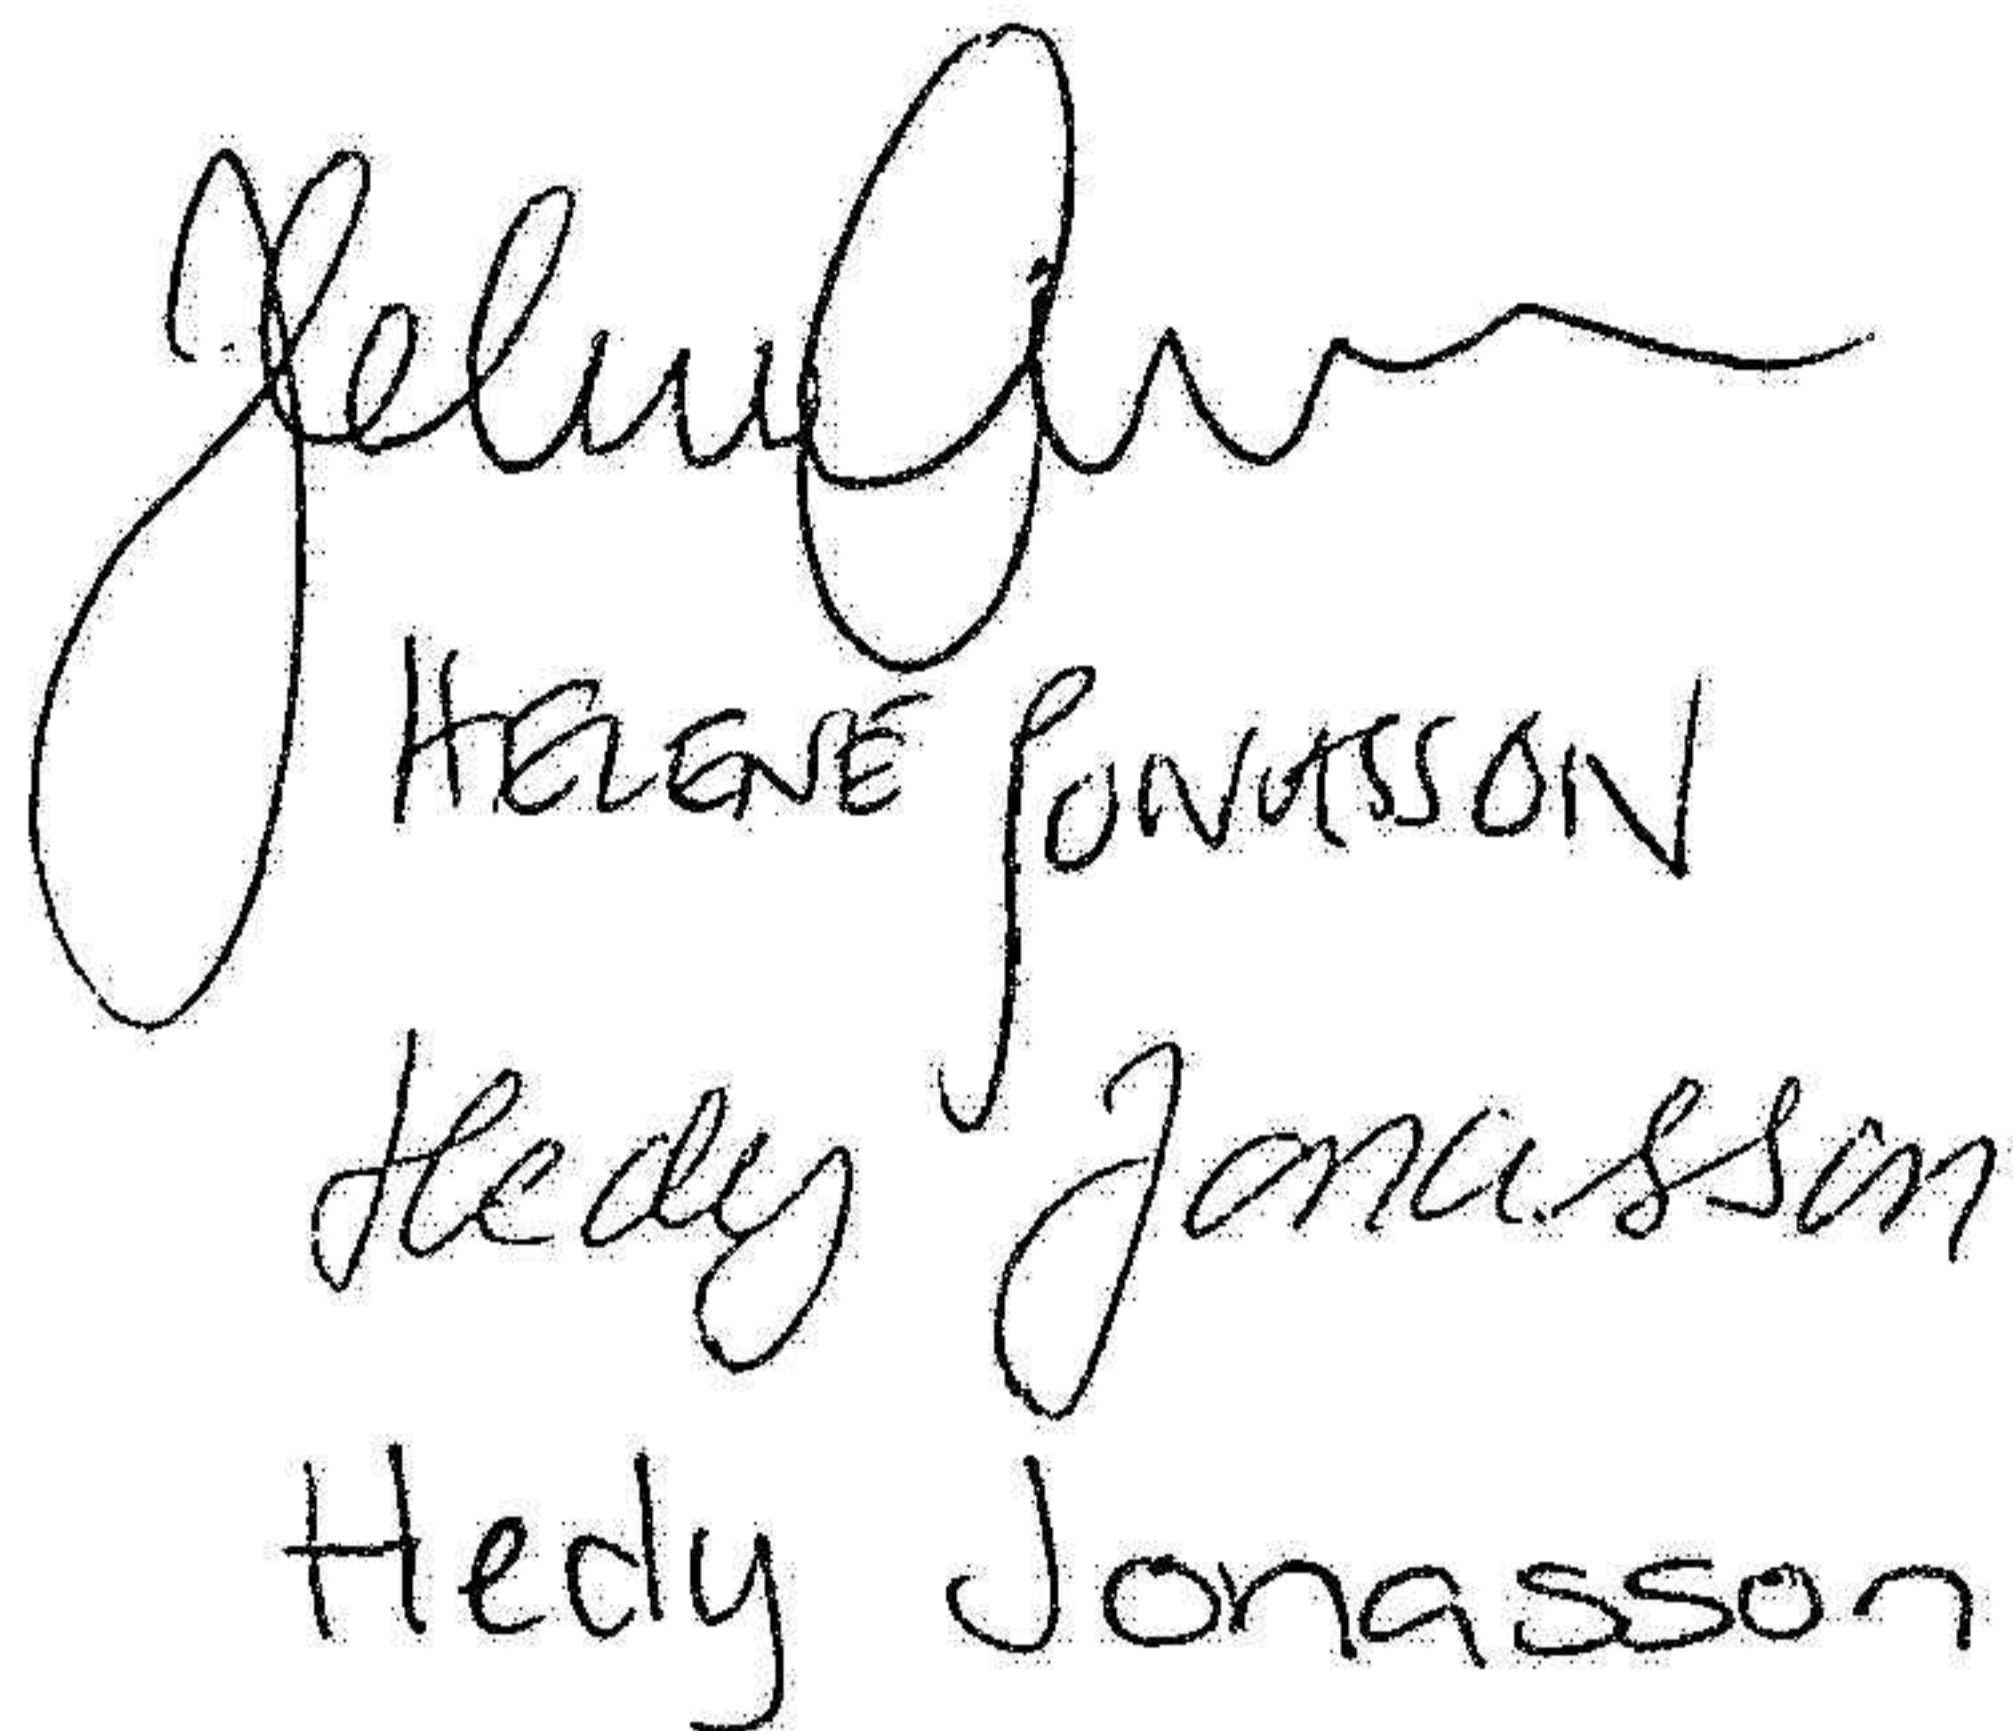 HELENE JONASSON
Hedy Jonasson
Hedy Jonasson